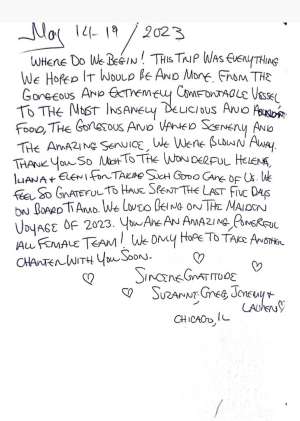 May 14-19 / 2023
WHERE DO WE BEGIN! THIS TRIP WAS EVERYTHING
WE HOPED IT WOULD BE AND MORE. FROM THE
GORGEOUS AND EXTREMELY COMFORTABLE VESSEL
TO THE MOST INSANELY DELICIOUS AND
FOOD, THE GORGEOUS AND VARIED SCENERY AND
THE AMAZING SERVICE, WE WERE BLOWN AWAY.
THANK YOU SO MUCH TO THE WONDERFUL HELENA,
ILIANA + ELENI FOR TAKING SUCH GOOD CARE OF US. WE
FEEL SO GRATEFUL TO HAVE SPENT THE LAST FIVE DAYS
ON BOARD TIAMO. WE LOVED BEING ON THE MAIDEN
VOYAGE OF 2023. YOU ARE AN AMAZING, POWERFUL
ALL FEMALE TEAM! WE ONLY HOPE TO TAKE ANOTHER
CHARTER WITH YOU SOON.
SINCERE GRATITUDE
SUZANNE, GREG, JEREMY +
LAUREN
CHICAGO, IL